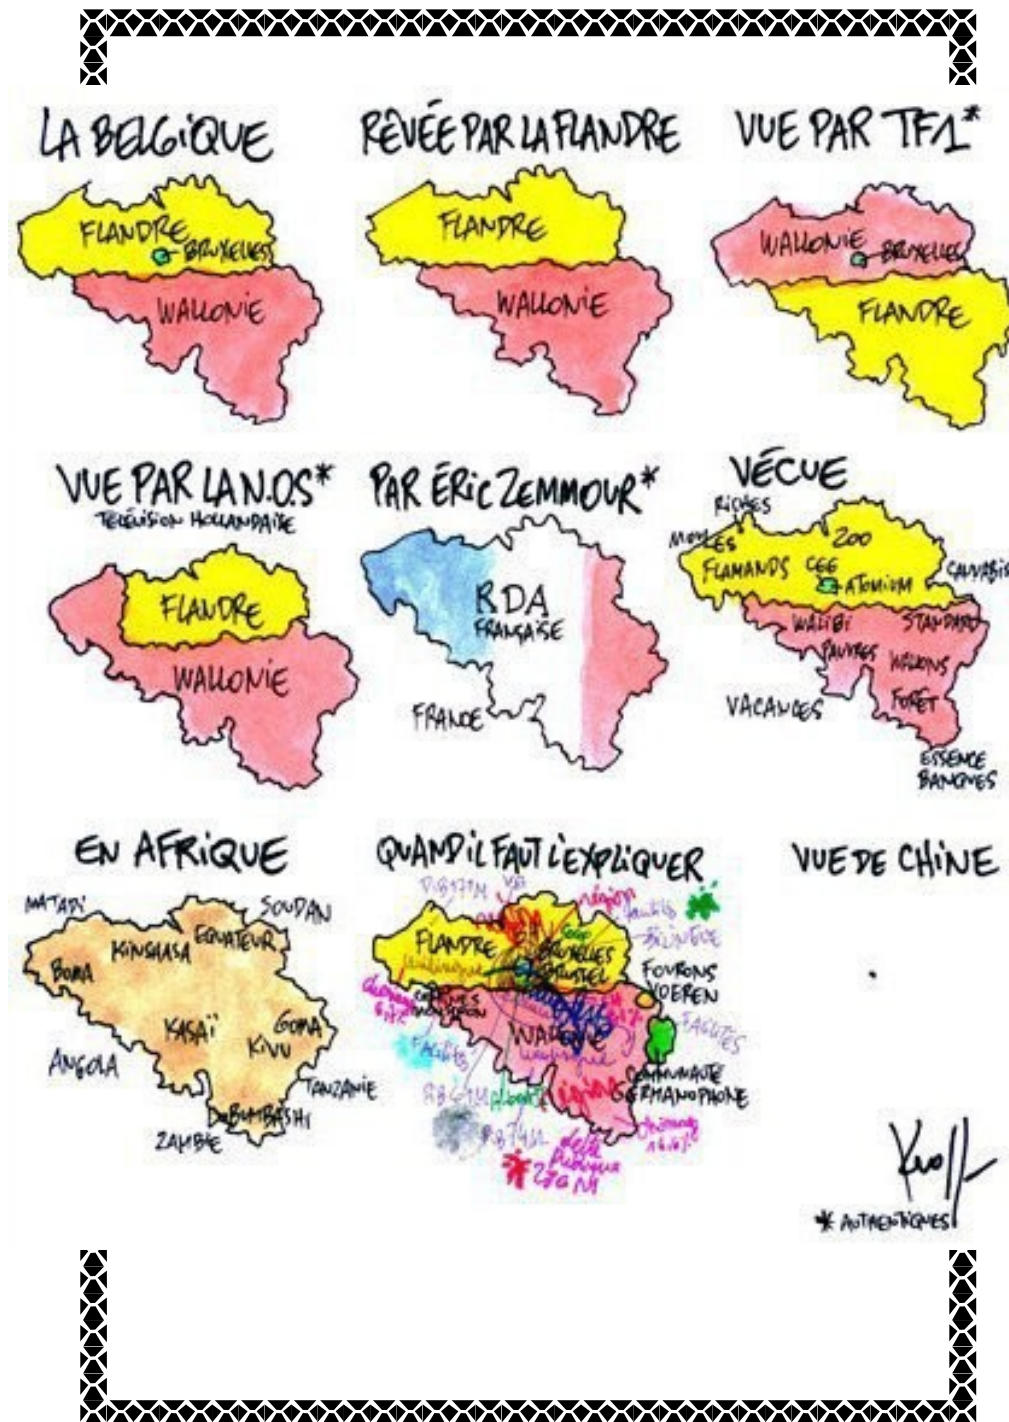 LA BELGIQUE
FLANDRE
BRUXELLES
WALLONIE
RÊVÉE PAR LA FLANDRE
FLANDRE
WALLONIE
VUE PAR TF1*
WALLONIE
BRUXELLES
FLANDRE
VUE PAR LA N.O.S*
TÉLÉVISION HOLLANDAISE
FLANDRE
WALLONIE
PAR ÉRIC ZEMMOUR*
RDA
FRANÇAISE
FRANCE
VÉCUE
RICHES
MOULES
ZOO
FLAMANDS
CEE
CANNABIS
ATOMIUM
WALIBI
STANDARD
PAUVRES
WALLONS
VACANCES
FORÊT
ESSENCE
BANQUES
EN AFRIQUE
MATADI
SOUDAN
KINSHASA
EQUATEUR
BOMA
KASAÏ
GOMA
KIVU
ANGOLA
TANZANIE
LUBUMBASHI
ZAMBIE
QUAND IL FAUT L'EXPLIQUER
région
FLANDRE
BRUXELLES
BRUSSEL
BILINGUE
FOURONS
VOEREN
WALLONIE
FACILITÉS
FACILITÉS
COMMUNAUTÉ
GERMANOPHONE
VUE DE CHINE
Kroll
* AUTHENTIQUES